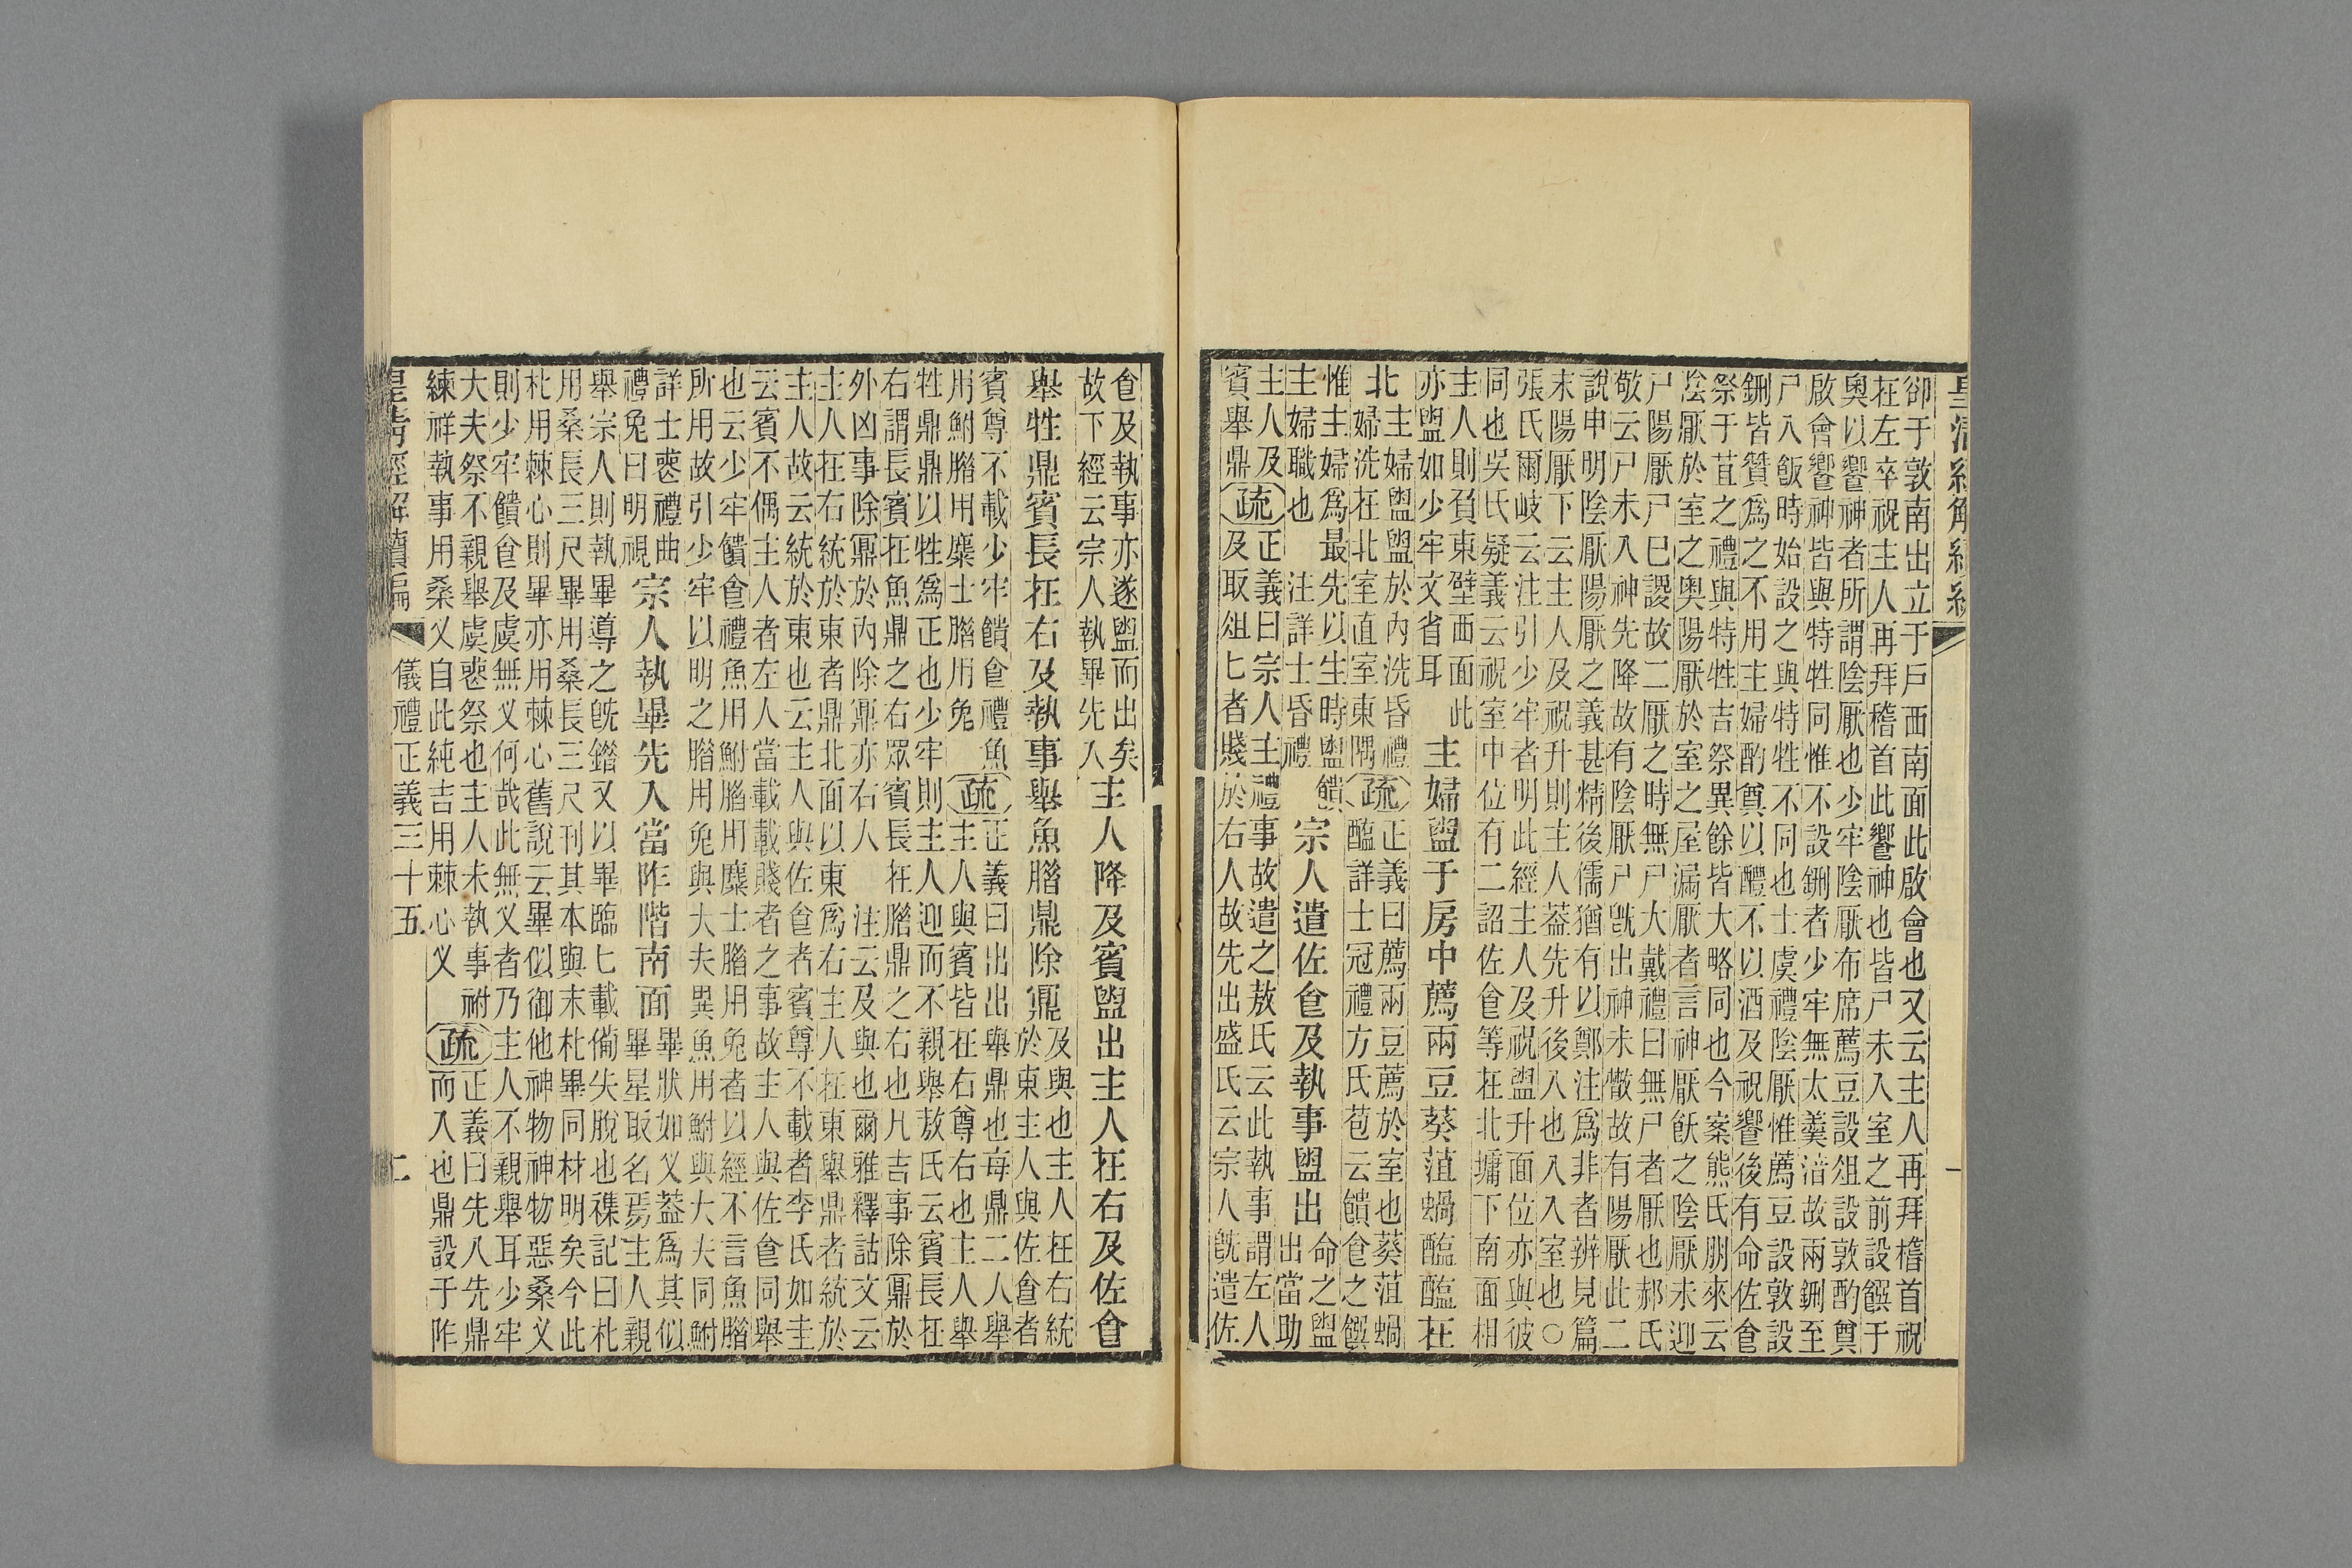 卻于敦南出立于戶西南面此啟會也又云主人再拜稽首祝
在左卒祝主人再拜稽首此饗神也皆尸未入室之前設饌于
奧以饗神者所謂陰厭也少牢陰厭布席薦豆設俎設敦酌奠
啟會饗神皆與特牲同惟不設鉶者少牢無太羹湆故兩鉶至
尸入飯時始設之與特牲不同也士虞禮陰厭惟薦豆設敦設
鉶皆贊爲之不用主婦酌奠以醴不以酒及祝饗後有命佐食
祭于苴之禮與特牲吉祭異餘皆大略同也今案熊氏朋來云
陰厭於室之奧陽厭於室之屋漏厭者言神厭飫之陰厭未迎
尸陽厭尸巳謖故二厭之時無尸大戴禮曰無尸者厭也郝氏
敬云尸未入神先降故有陰厭尸旣出神未慊故有陽厭此二
說申明陰厭陽厭之義甚精後儒猶有以鄭注爲非者辨見篇
末陽厭下云主人及祝升則主人葢先升後入也入入室也○
張氏爾岐云注引少牢者明此經主人及祝盥升面位亦與彼
同也吳氏疑義云祝室中位有二詔佐食等在北墉下南面相
主人則負東壁西面此
亦盥如少牢文省耳
主婦盥于房中薦兩豆葵菹蝸醢醢在
北
主婦盥盥於內洗昏禮
婦洗在北室直室東隅
疏
正義曰薦兩豆薦於室也葵菹蝸
醢詳士冠禮方氏苞云饋食之饌
惟主婦爲最先以生時盥饋
主婦職也 注詳士昏禮
宗人遣佐食及執事盥出
命之盥
出當助
主人及
賓舉鼎
疏
正義曰宗人主禮事故遣之敖氏云此執事謂左人
及取俎匕者賤於右人故先出盛氏云宗人旣遣佐
食及執事亦遂盥而出矣
故下經云宗人執畢先入
主人降及賓盥出主人在右及佐食
舉牲鼎賓長在右及執事舉魚腊鼎除鼏
及與也主人在右統
於東主人與佐食者
賓尊不載少牢饋食禮魚
用鮒腊用麋士腊用兔
疏
正義曰出出舉鼎也每鼎二人舉
主人與賓皆在右尊右也主人舉
牲鼎鼎以牲爲正也少牢則主人迎而不親舉敖氏云賓長在
右謂長賓在魚鼎之右眾賓長在腊鼎之右也凡吉事除鼏於
外凶事除鼏於內除鼏亦右人 注云及與也爾雅釋詁文云
主人在右統於東者鼎北面以東爲右主人在東舉鼎者統於
主人故云統於東也云主人與佐食者賓尊不載者李氏如圭
云賓不偶主人者左人當載載賤者之事故主人與佐食同舉
也云少牢饋食禮魚用鮒腊用麋士腊用兔者以經不言魚腊
所用故引少牢以明之腊用兔與大夫異魚用鮒與大夫同鮒
詳士喪禮曲
禮兔曰明視
宗人執畢先入當阼階南面
畢狀如叉葢爲其似
畢星取名焉主人親
舉宗人則執畢導之旣錯又以畢臨匕載備失脫也襍記曰朼
用桑長三尺畢用桑長三尺刊其本與末朼畢同材明矣今此
朼用棘心則畢亦用棘心舊說云畢似御他神物神物惡桑叉
則少牢饋食及虞無叉何哉此無叉者乃主人不親舉耳少牢
大夫祭不親舉虞喪祭也主人未執事祔
練祥執事用桑叉自此純吉用棘心叉
疏
正義曰先入先鼎
而入也鼎設于阼
皇清經解續編 儀禮正義三十五